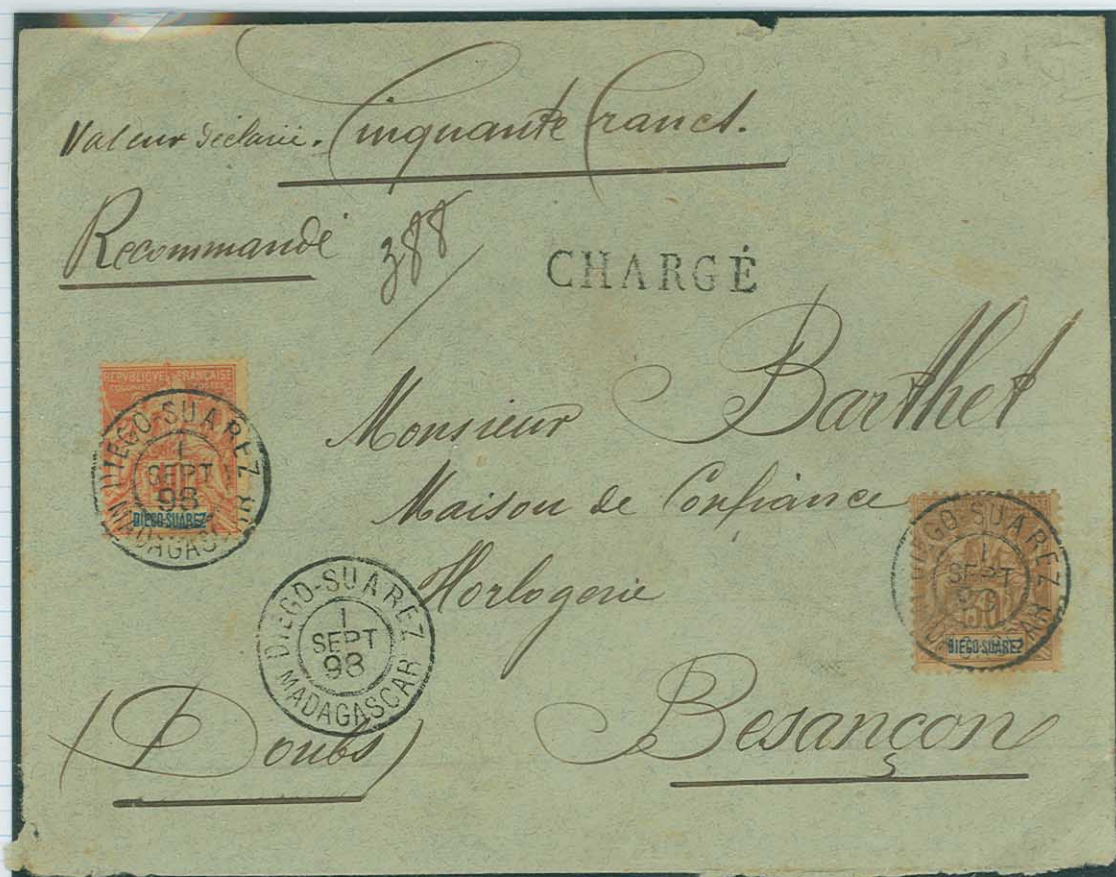 Valeur déclarée. Cinquante francs.
Recommandé
388
CHARGÉ
RÉPUBLIQUE FRANÇAISE
DIEGO-SUAREZ
1
SEPT
98
MADAGASCAR
DIEGO-SUAREZ
Monsieur Barthet
Maison de Confiance
Horlogerie
DIEGO-SUAREZ
1
SEPT
98
MADAGASCAR
DIEGO-SUAREZ
1
SEPT
MADAGASCAR
30
DIEGO-SUAREZ
(Doubs)
Besançon